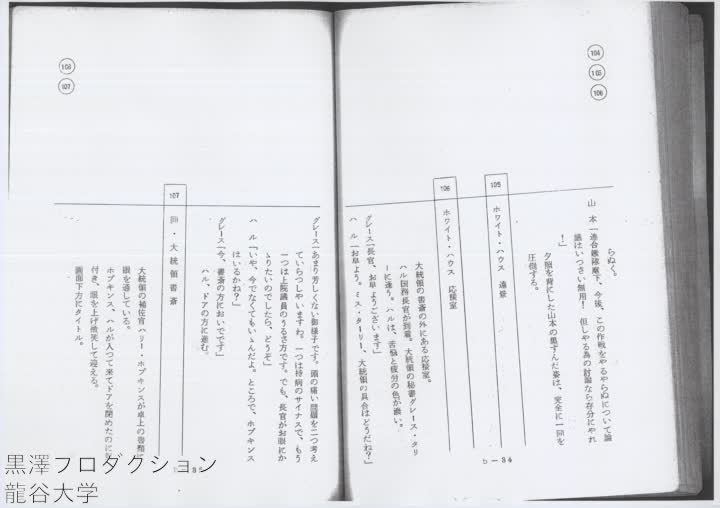 104
105
106
らぬく。
山　本「連合艦隊麾下、今後、この作戦をやるやらぬについて論
議はいつさい無用！　但しやる為の討論なら存分にやれ
！」
夕照を背にした山本の黒ずんだ姿は、完全に一同を
圧倒する。
105　ホワイト・ハウス　遠景
106　ホワイト・ハウス　応接室
大統領の書斎の外にある応接室。
ハル国務長官が到着、大統領の秘書グレース・タリ
ーに逢う。ハルは、苦悩と疲労の色が濃い。
グレース「長官、お早ようございます」
ハ　ル「お早よう。ミス・ターリー、大統領の具合はどうだね？」
b－34
106
107
グレース「あまり芳しくない御様子です。頭の痛い問題を二つ考え
ていらつしやいますね。一つは持病のサイナスで、もう
一つは上院議員のうるさ方です。でも、長官がお眼にか
ゝりたいのでしたら、どうぞ」
ハ　ル「いや、今でなくてもいゝんだよ。ところで、ホプキンス
はいるかね？」
グレース「今、書斎の方においでです」
ハル、ドアの方に進む。
107　同・大統領書斎
大統領の補佐官ハリー・ホプキンスが卓上の書類に
眼を通している。
ホプキンス、ハルが入つて来てドアを閉めたのに
付き、眼を上げ微笑して迎える。
画面下方にタイトル。
黒澤プロダクション
龍谷大学